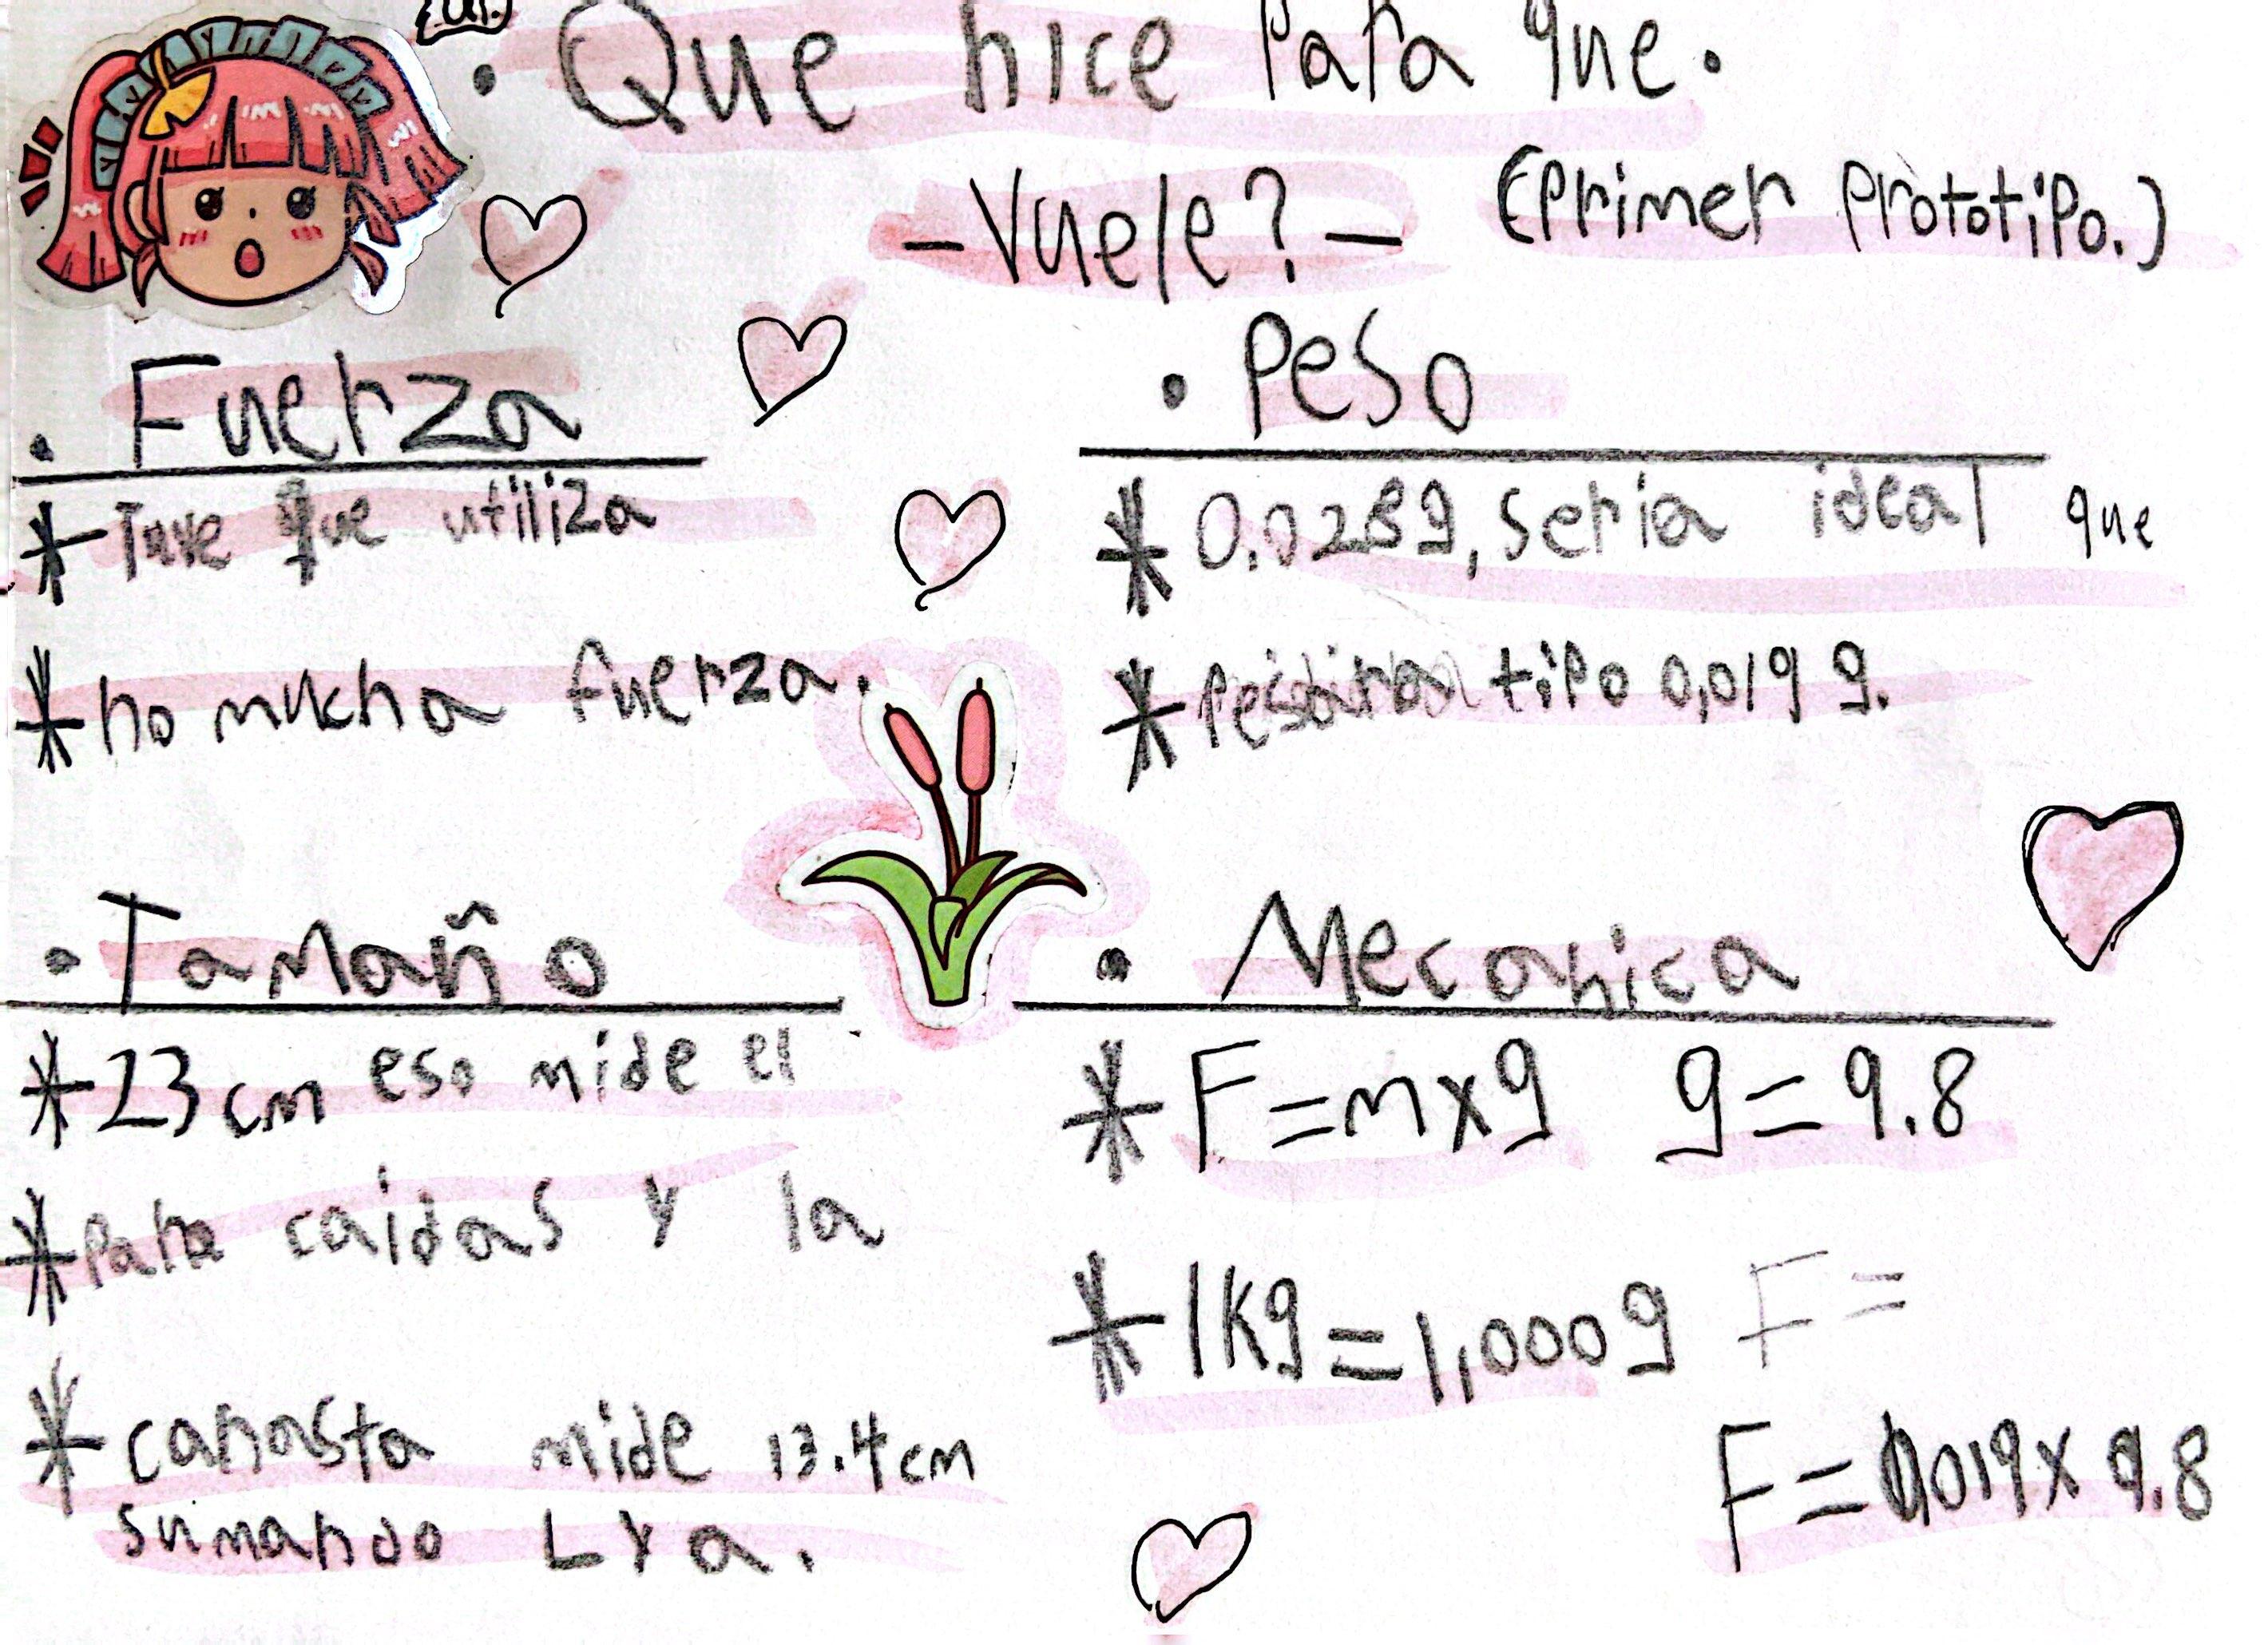 • Que hice Para que.
- Vuele? - (Primer Prototipo.)
• Fuerza
* Tuve que utiliza
* no mucha fuerza.
• Peso
* seria ideal que
* tipo 0,019 g.
• Tamaño
* 23 cm eso mide el
* Para caidas y la
* canasta mide 13.4 cm
sumando L y a.
• Mecanica
* F=mxg g=9.8
* 1Kg=1,000g F=
F=0,019x9.8